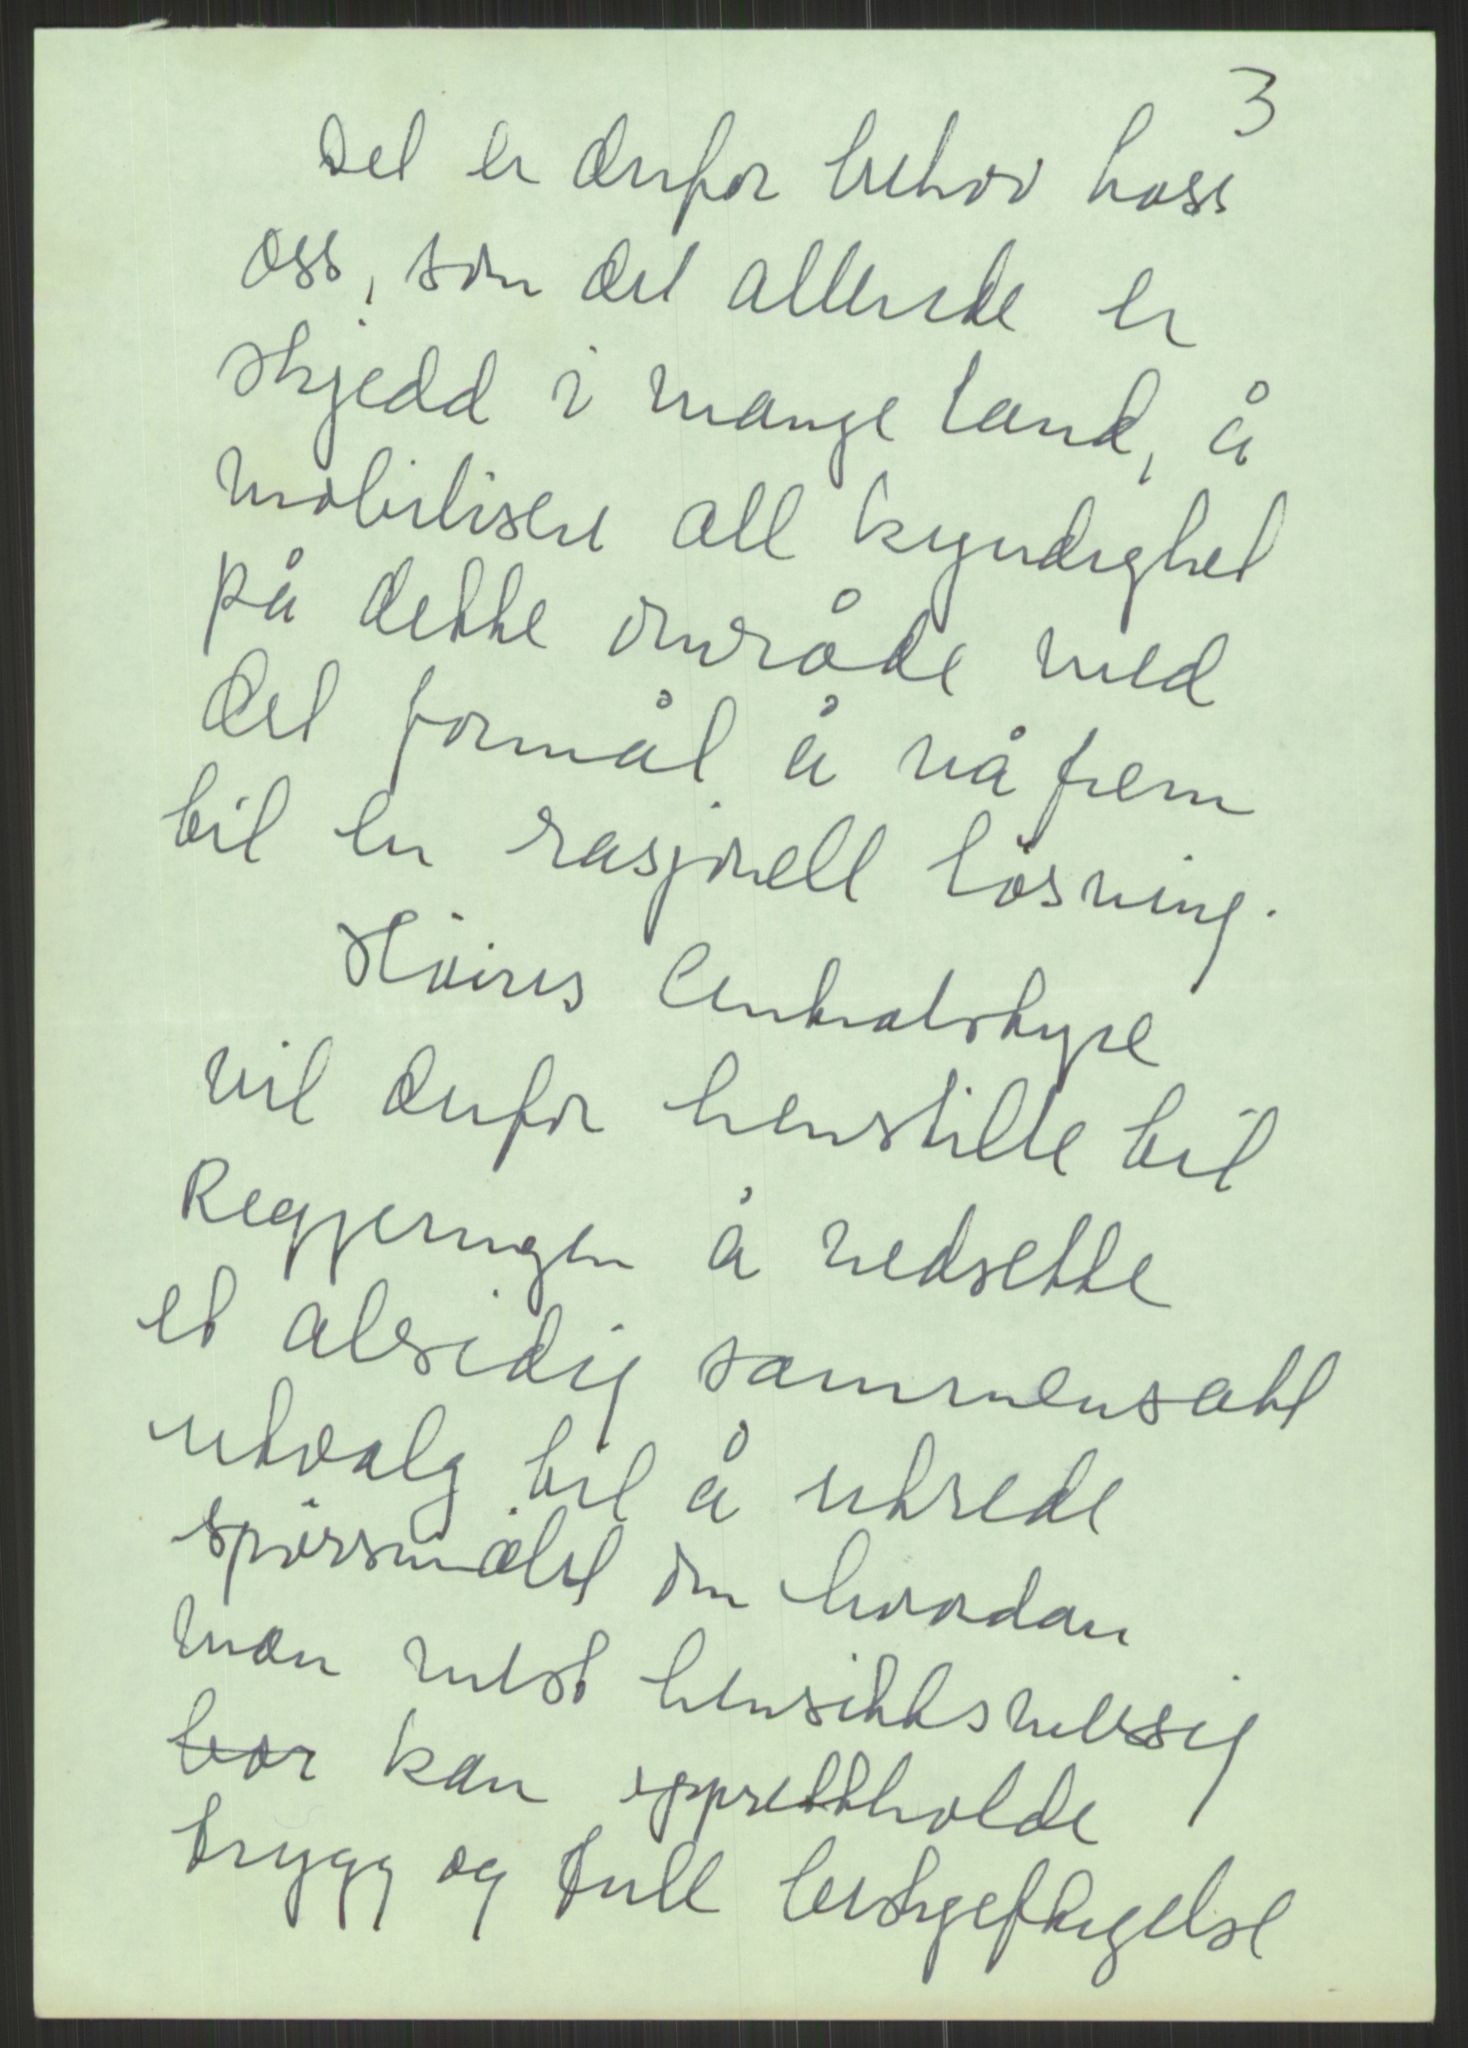 3
Det er derfor behov hoss
oss, som det allerede er
skjedd i mange land, å
mobilisere all kyndighet
på dette område med
det formål å nå frem
til en rasjonell løsning.
Høires Centralstyre
vil derfor henstille til
Regjeringen å nedsette
et alsidig sammensatt
utvalg til å utrede
spørsmålet om hvordan
man mest hensiktsmessig
bør kan opprettholde
trygg og full beskjeftigelse